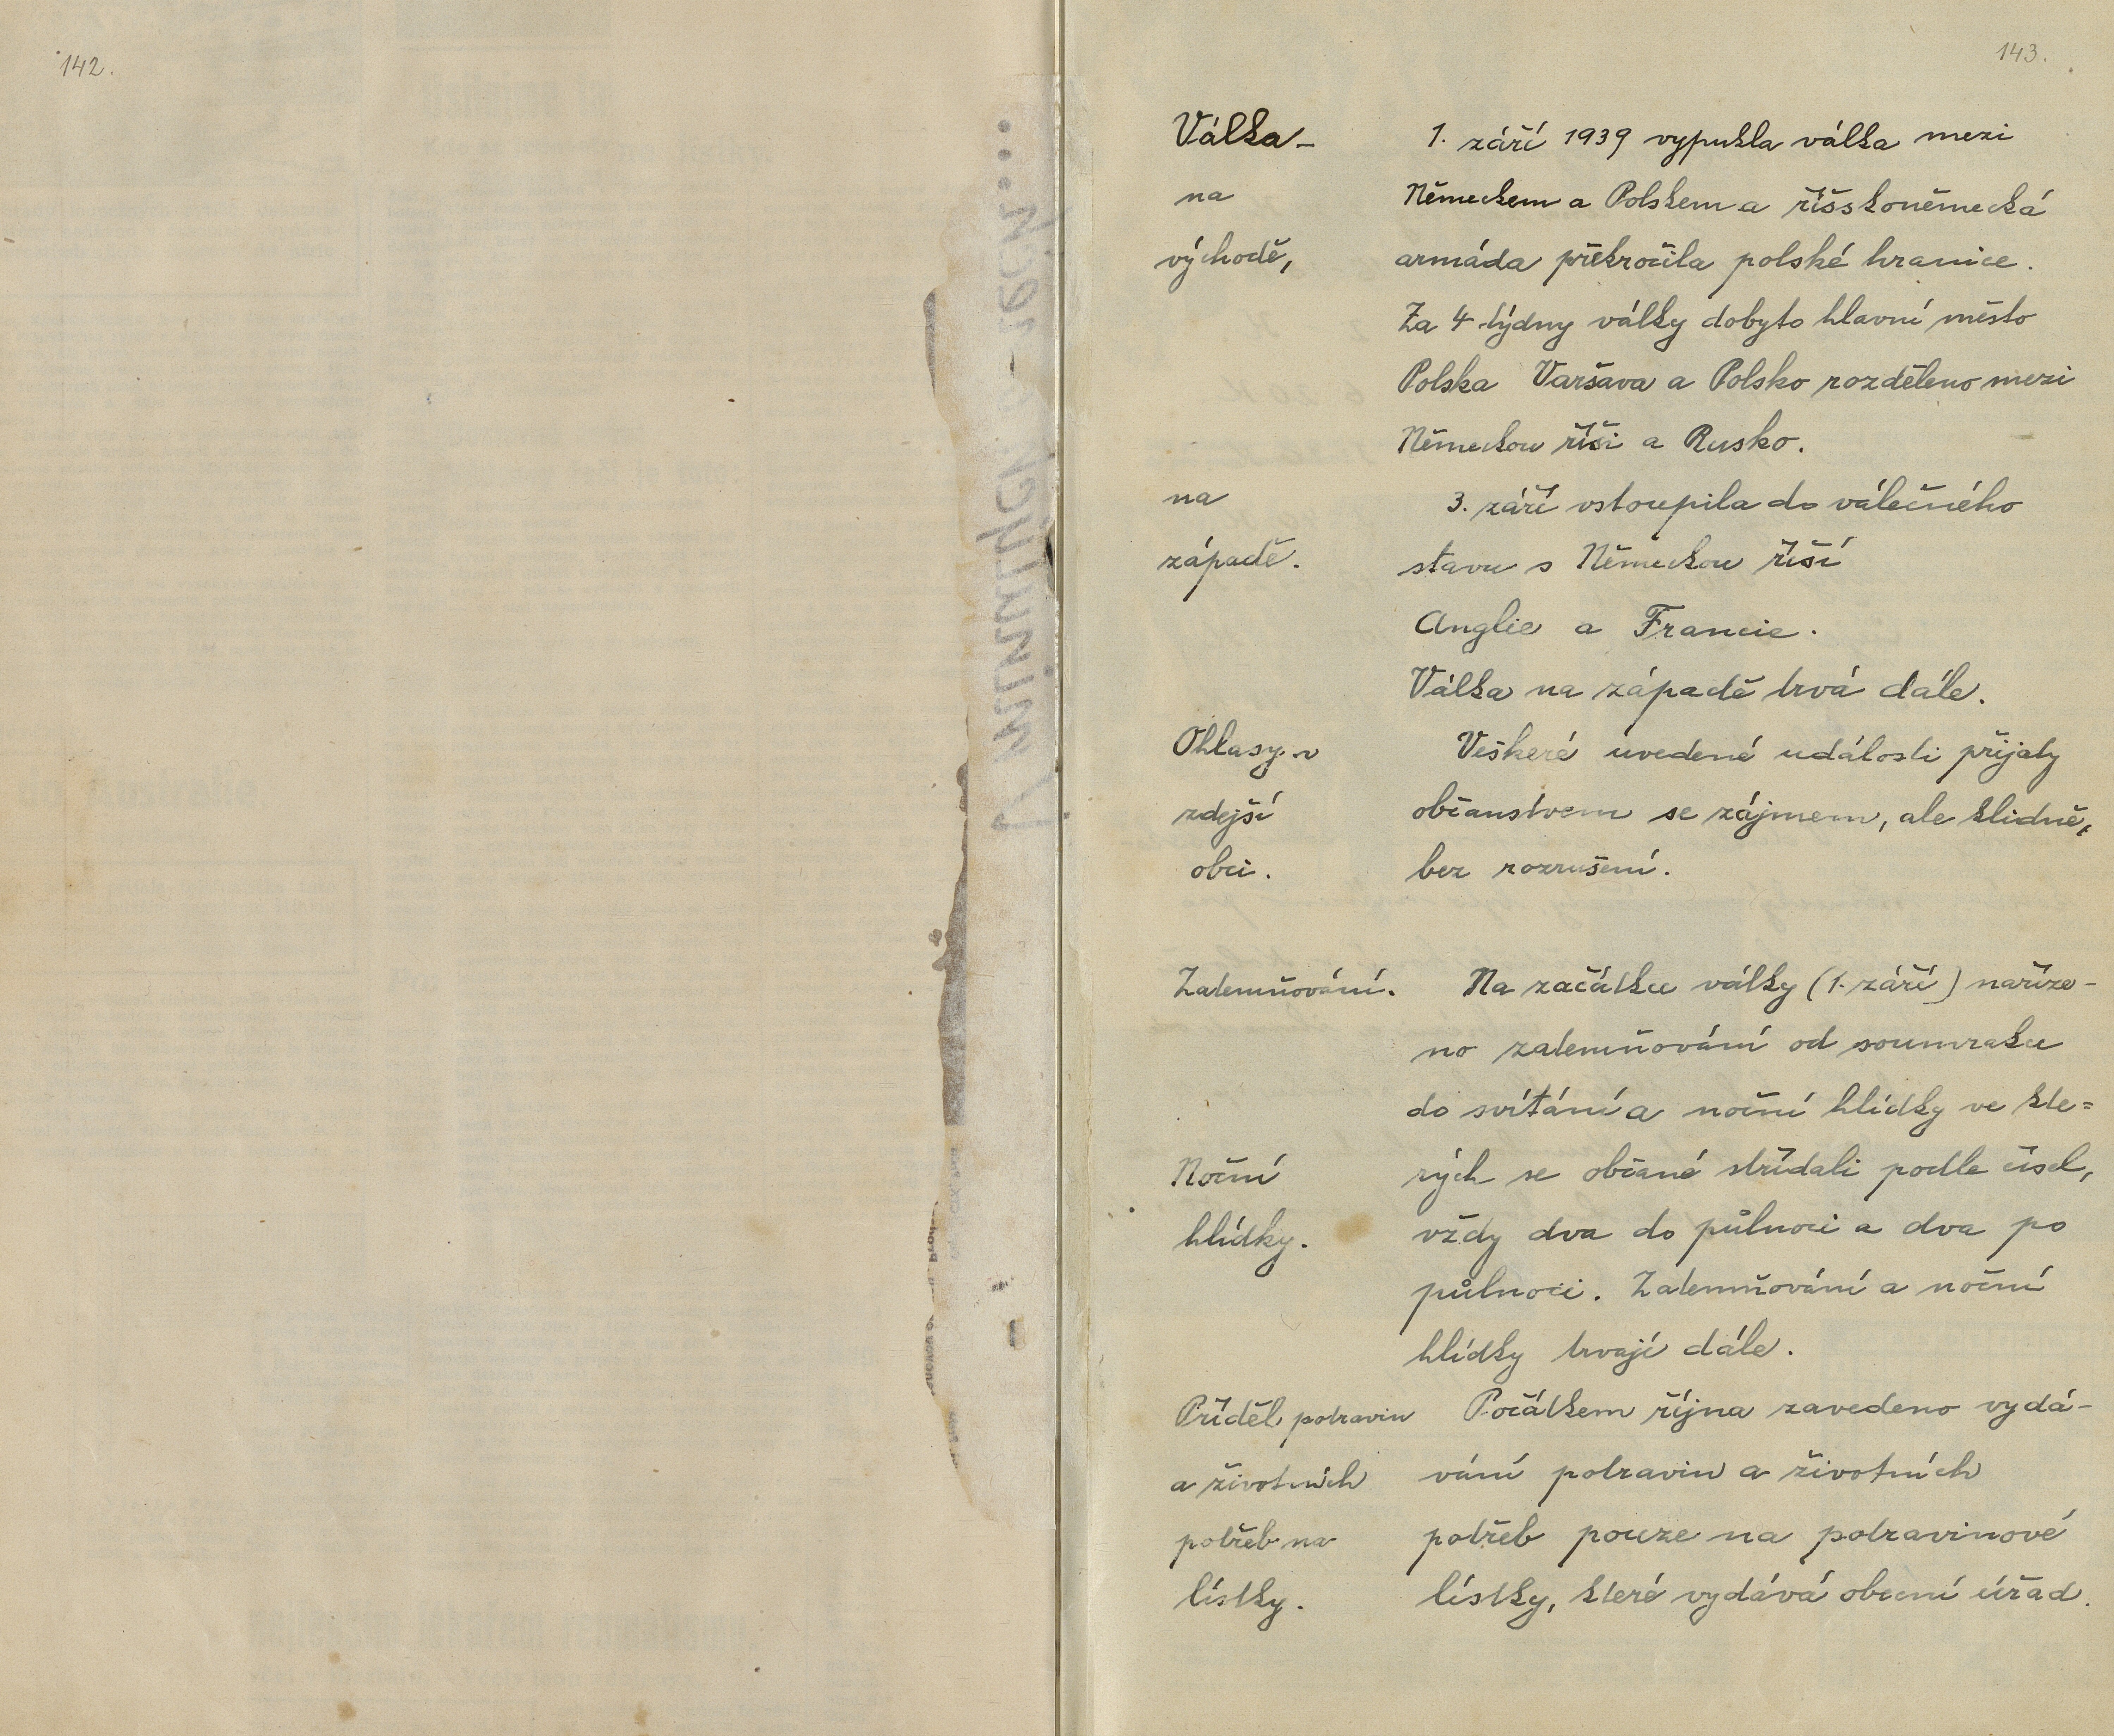 142.
143.
Válka -
na
východě,
1. září 1939 vypukla válka mezi
Německem a Polskem a říšskoněmecká
armáda překročila polské hranice.
Za 4 týdny války dobyto hlavní město
Polska Varšava a Polsko rozděleno mezi
Německou říši a Rusko.
na
západě.
3. září vstoupila do válečného
stavu s Německou říší
Anglie a Francie.
Válka na západě trvá dále.
Ohlasy v
zdejší
obci.
Veškeré uvedené události přijaty
občanstvem se zájmem, ale klidně,
bez rozrušení.
Zatemňování.
Na začátku války (1. září) naříze-
no zatemňování od soumraku
do svítání a noční hlídky ve kte=
Noční
hlídky.
rých se občané střídali podle čísel,
vždy dva do půlnoci a dva po
půlnoci. Zatemňování a noční
hlídky trvají dále.
Příděl potravin
a životních
potřeb na
lístky.
Počátkem října zavedeno vydá-
vání potravin a životních
potřeb pouze na potravinové
lístky, které vydává obecní úřad.